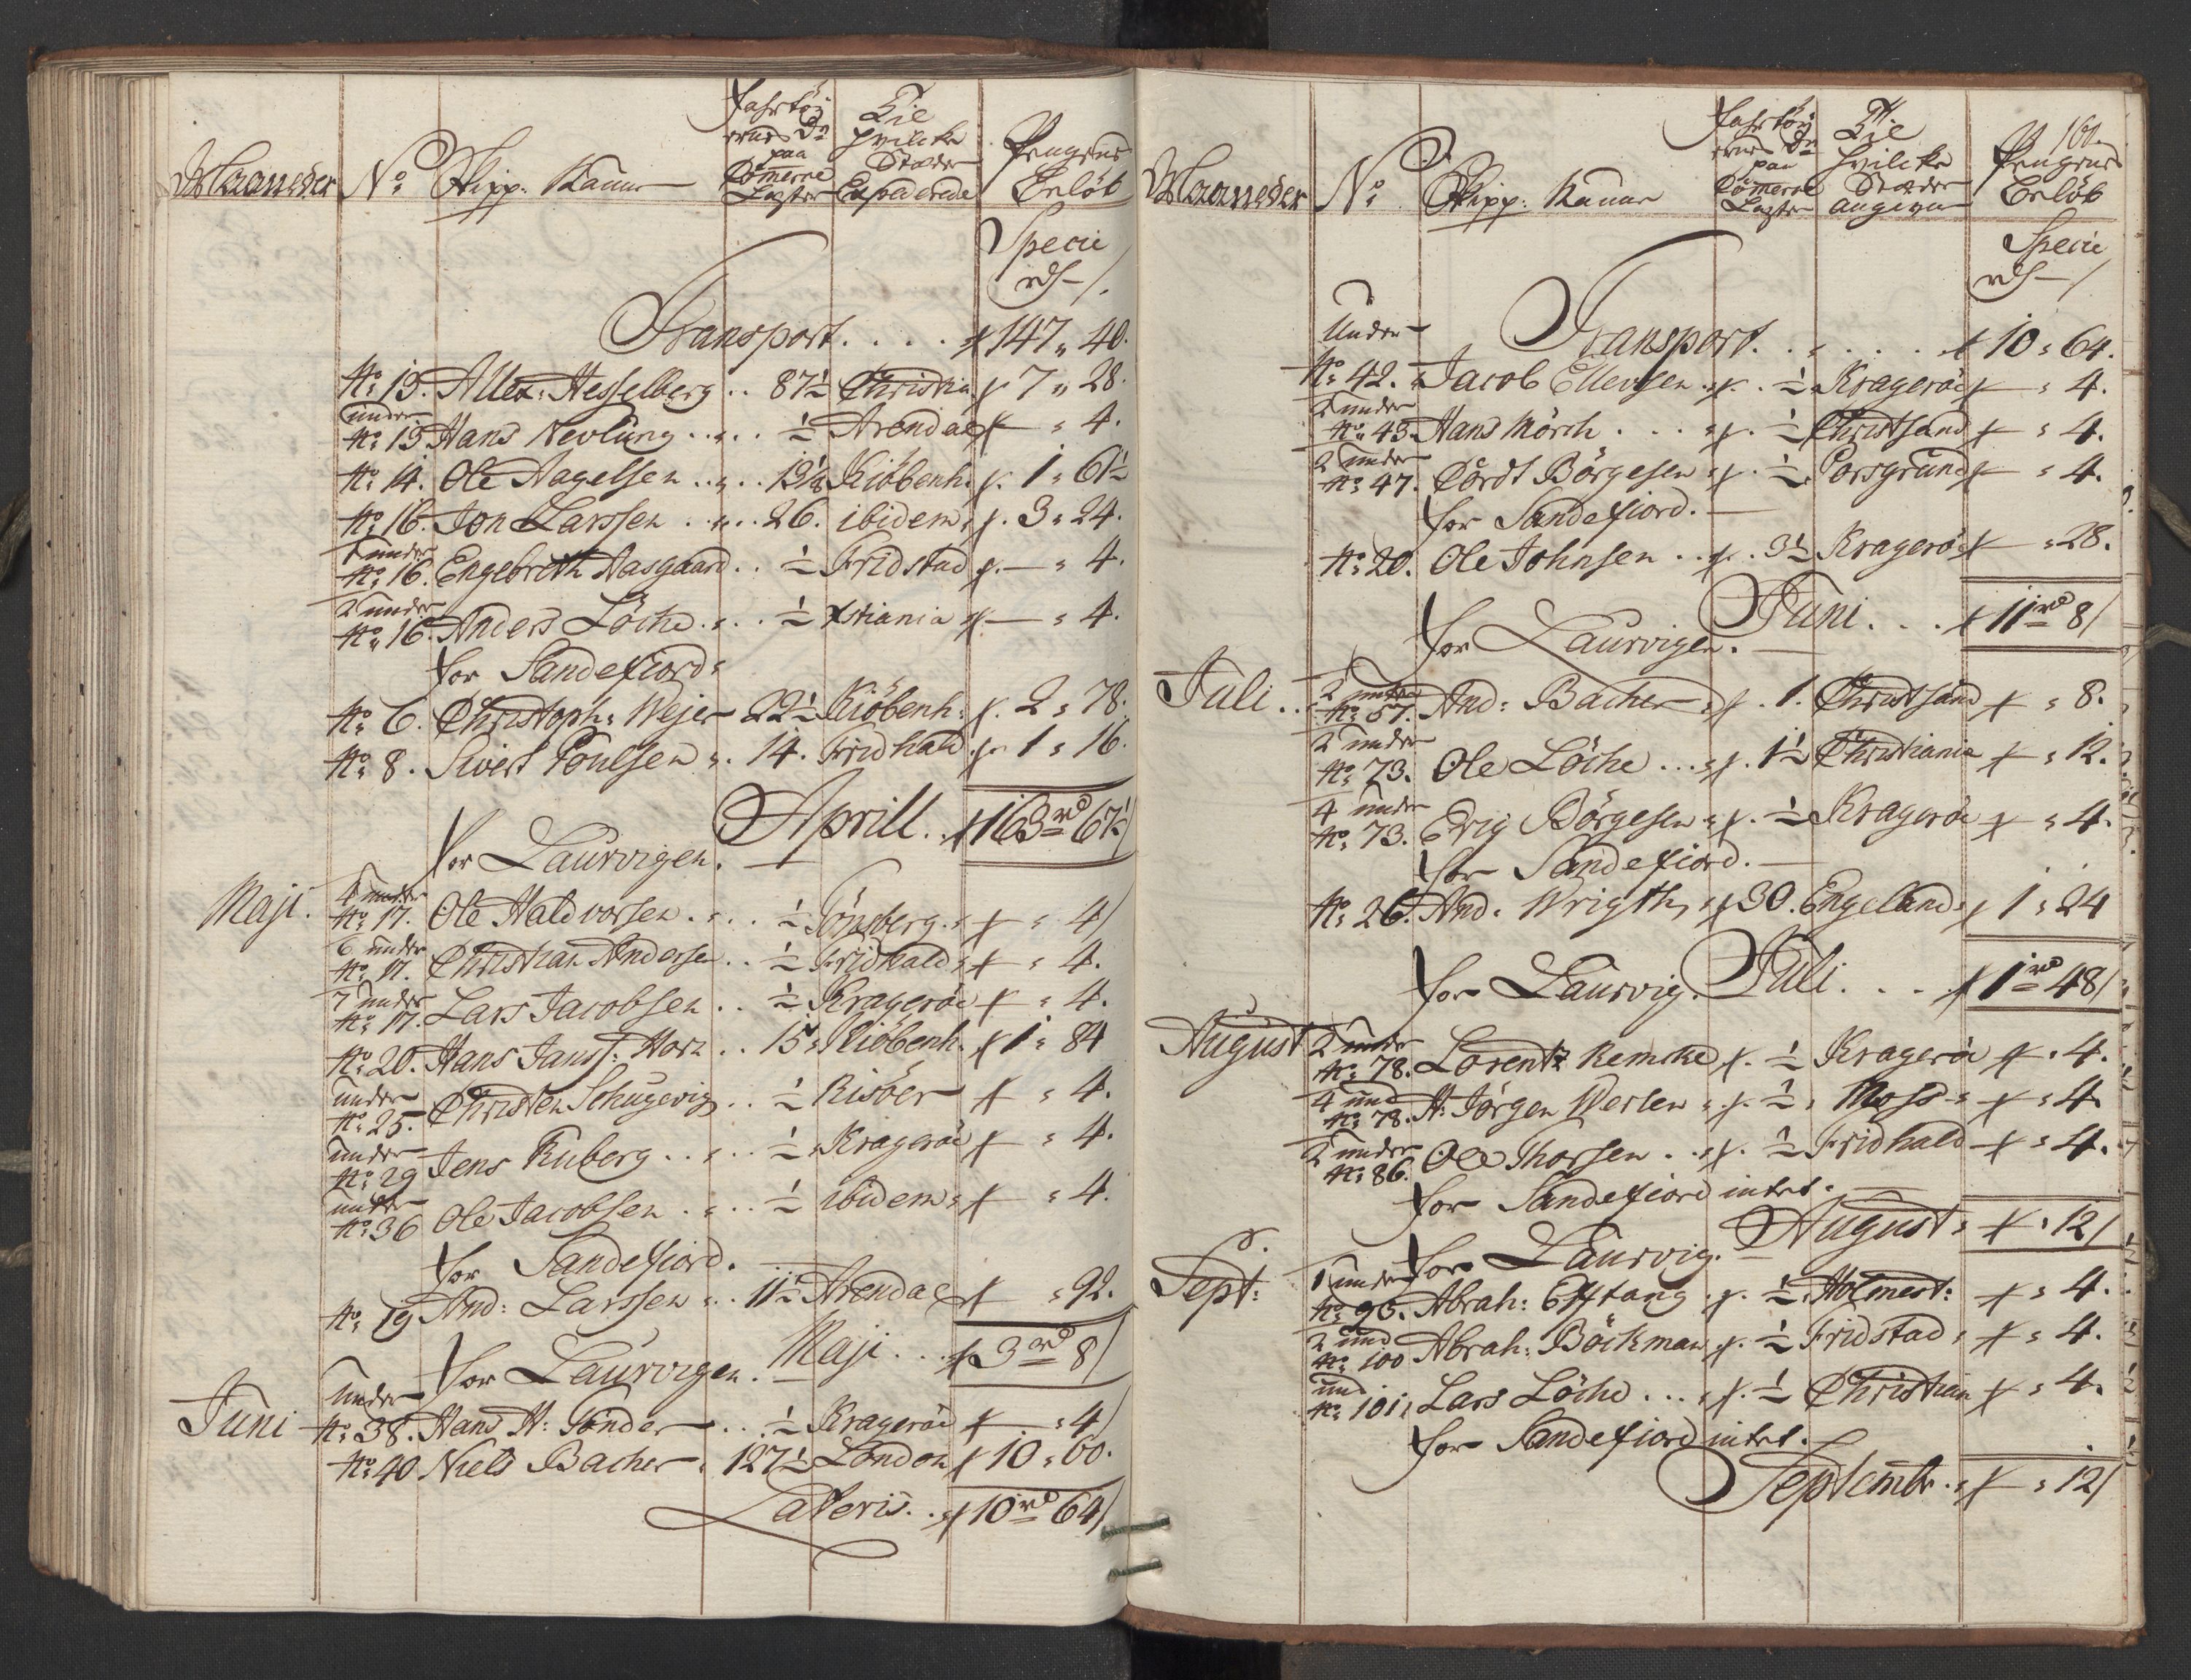 Maaneder No: Skipp: Naune Fahrtöy ernes Dr paa Comerce Læster Til hvilcke Stæder Expederede Pengenes Erlöb
Specie
rd - /
Transport . . . . # 147 " 40.
No: 13. Allex: Hesselberg . . 87½ Christia # 7 " 28.
under No: 13. Hans Nevlung . . . ½ Arendal # " 4.
No: 14. Ole Nagelsen . . . 13½ Kiöbenh: # 1 " 61½
No: 16. Jon Larssen . . . 26. ibidem # 3 " 24.
1 under No: 16. Engebreth Aasgaard . . ½ Fridstad # — " 4.
2 under No: 16. Anders Löche . . . ½ Xstiania # — " 4.
for Sandefiord:
No: 6. Christoph: Wejer 22½ Kiöbenh: # 2 " 78.
No: 8. Sivert Poulsen . . 14. Fridhald # 1 " 16.
Aprill . . # 163 rd 67½ /
for Laurvigen. —
Maji. 4 under No: 17. Ole Haldvorsen . . . ½ Tönsberg # " 4 /
6 under No: 17. Christian Andersen . . ½ Fridhald # " 4.
7 under No: 17. Lars Jacobsen . . ½ Krageröe # " 4.
No: 20. Hans Janss: Horn . . 15 Kiöbenh: # 1 " 84
under No: 25. Christen Schugevig . . ½ Risöer # " 4.
under No: 29 Jens Ruberg . . . ½ Krageröe # " 4.
under No: 36 Ole Jacobsen . . . ½ ibidem # " 4.
for Sandefiord. —
No: 19 And: Larssen . . 11½ Arendal # " 92.
Maji . . . # 3 rd 8 /
for Laurvigen. —
Juni under No: 38. Hans H: Tönder . . . ½ Krageröe # — " 4 /
No: 40 Niels Bacher . 127½ London # 10 " 60.
Lateris . . # 10 rd 64 /
161.
Maaneder No: Skipp: Naune Fahrtöy ernes Dr paa Comerce Læster Til hvilcke Stæder angivne Pengenes Erlöb
Specie
rd - /
Transport . . . . . # 10 " 64.
Under No: 42. Jacob Ellevsen # . ½ Krageröe # — " 4.
2 under No: 43. Hans Mörch . . . # . ½ Christsand # " 4.
2 under No: 47. Cordt Börgesen # . ½ Porsgrund # — " 4.
for Sandefiord. —
No: 20. Ole Johnsen . . # . 3½ Krageröe # — " 28.
Juni . . . # 11 rd 8 /
for Laurvigen. —
Juli . . 2 under No: 57. And: Bacher # . 1. Christsand # " 8.
2 under No: 73. Ole Löche . . . # . 1½ Christiania # " 12.
4 under No: 73. Erig Börgesen # . ½ Krageröe # " 4.
for Sandefiord. —
No: 26. And: Wrigth # 30. Engeland # 1 " 24
Juli . . . # 1 rd 48 /
for Laurvig.
August 2 under No: 78. Lorentz Remcke # . ½ Krageröe # " 4.
4 und No: 78. H: Jörgen Werlen # . ½ Moss # " 4.
2 under No: 86. Ole Thorsen . . # . ½ Fridhald # " 4.
for Sandefiord intet. —
August # " 12 /
for Laurvig. —
Sept: 1 under No: 95. Abrah: Efftang # . ½ Holmest: # " 4.
2 und No: 100 Abrah: Böckman # . ½ Fridstad # " 4.
und No: 101 Lars Löche . . . # . ½ Christian # " 4.
for Sandefiord intet. —
Septembr. # " 12 /